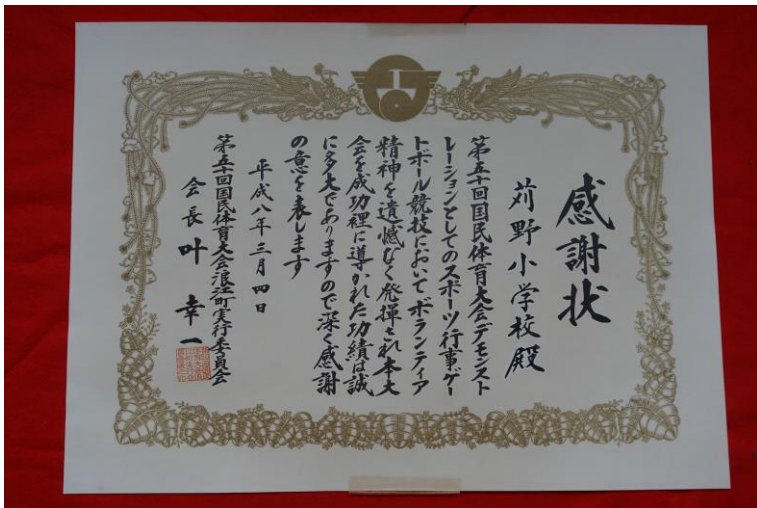 感謝状
苅野小学校殿
第五十回国民体育大会デモンスト
レーションとしてのスポーツ行事ゲー
トボール競技においてボランティア
精神を遺憾なく発揮され本大
会を成功裡に導かれた功績は誠
に多大でありますので深く感謝
の意を表します
平成八年三月四日
第五十回国民体育大会浪江町実行委員会
会長叶幸一